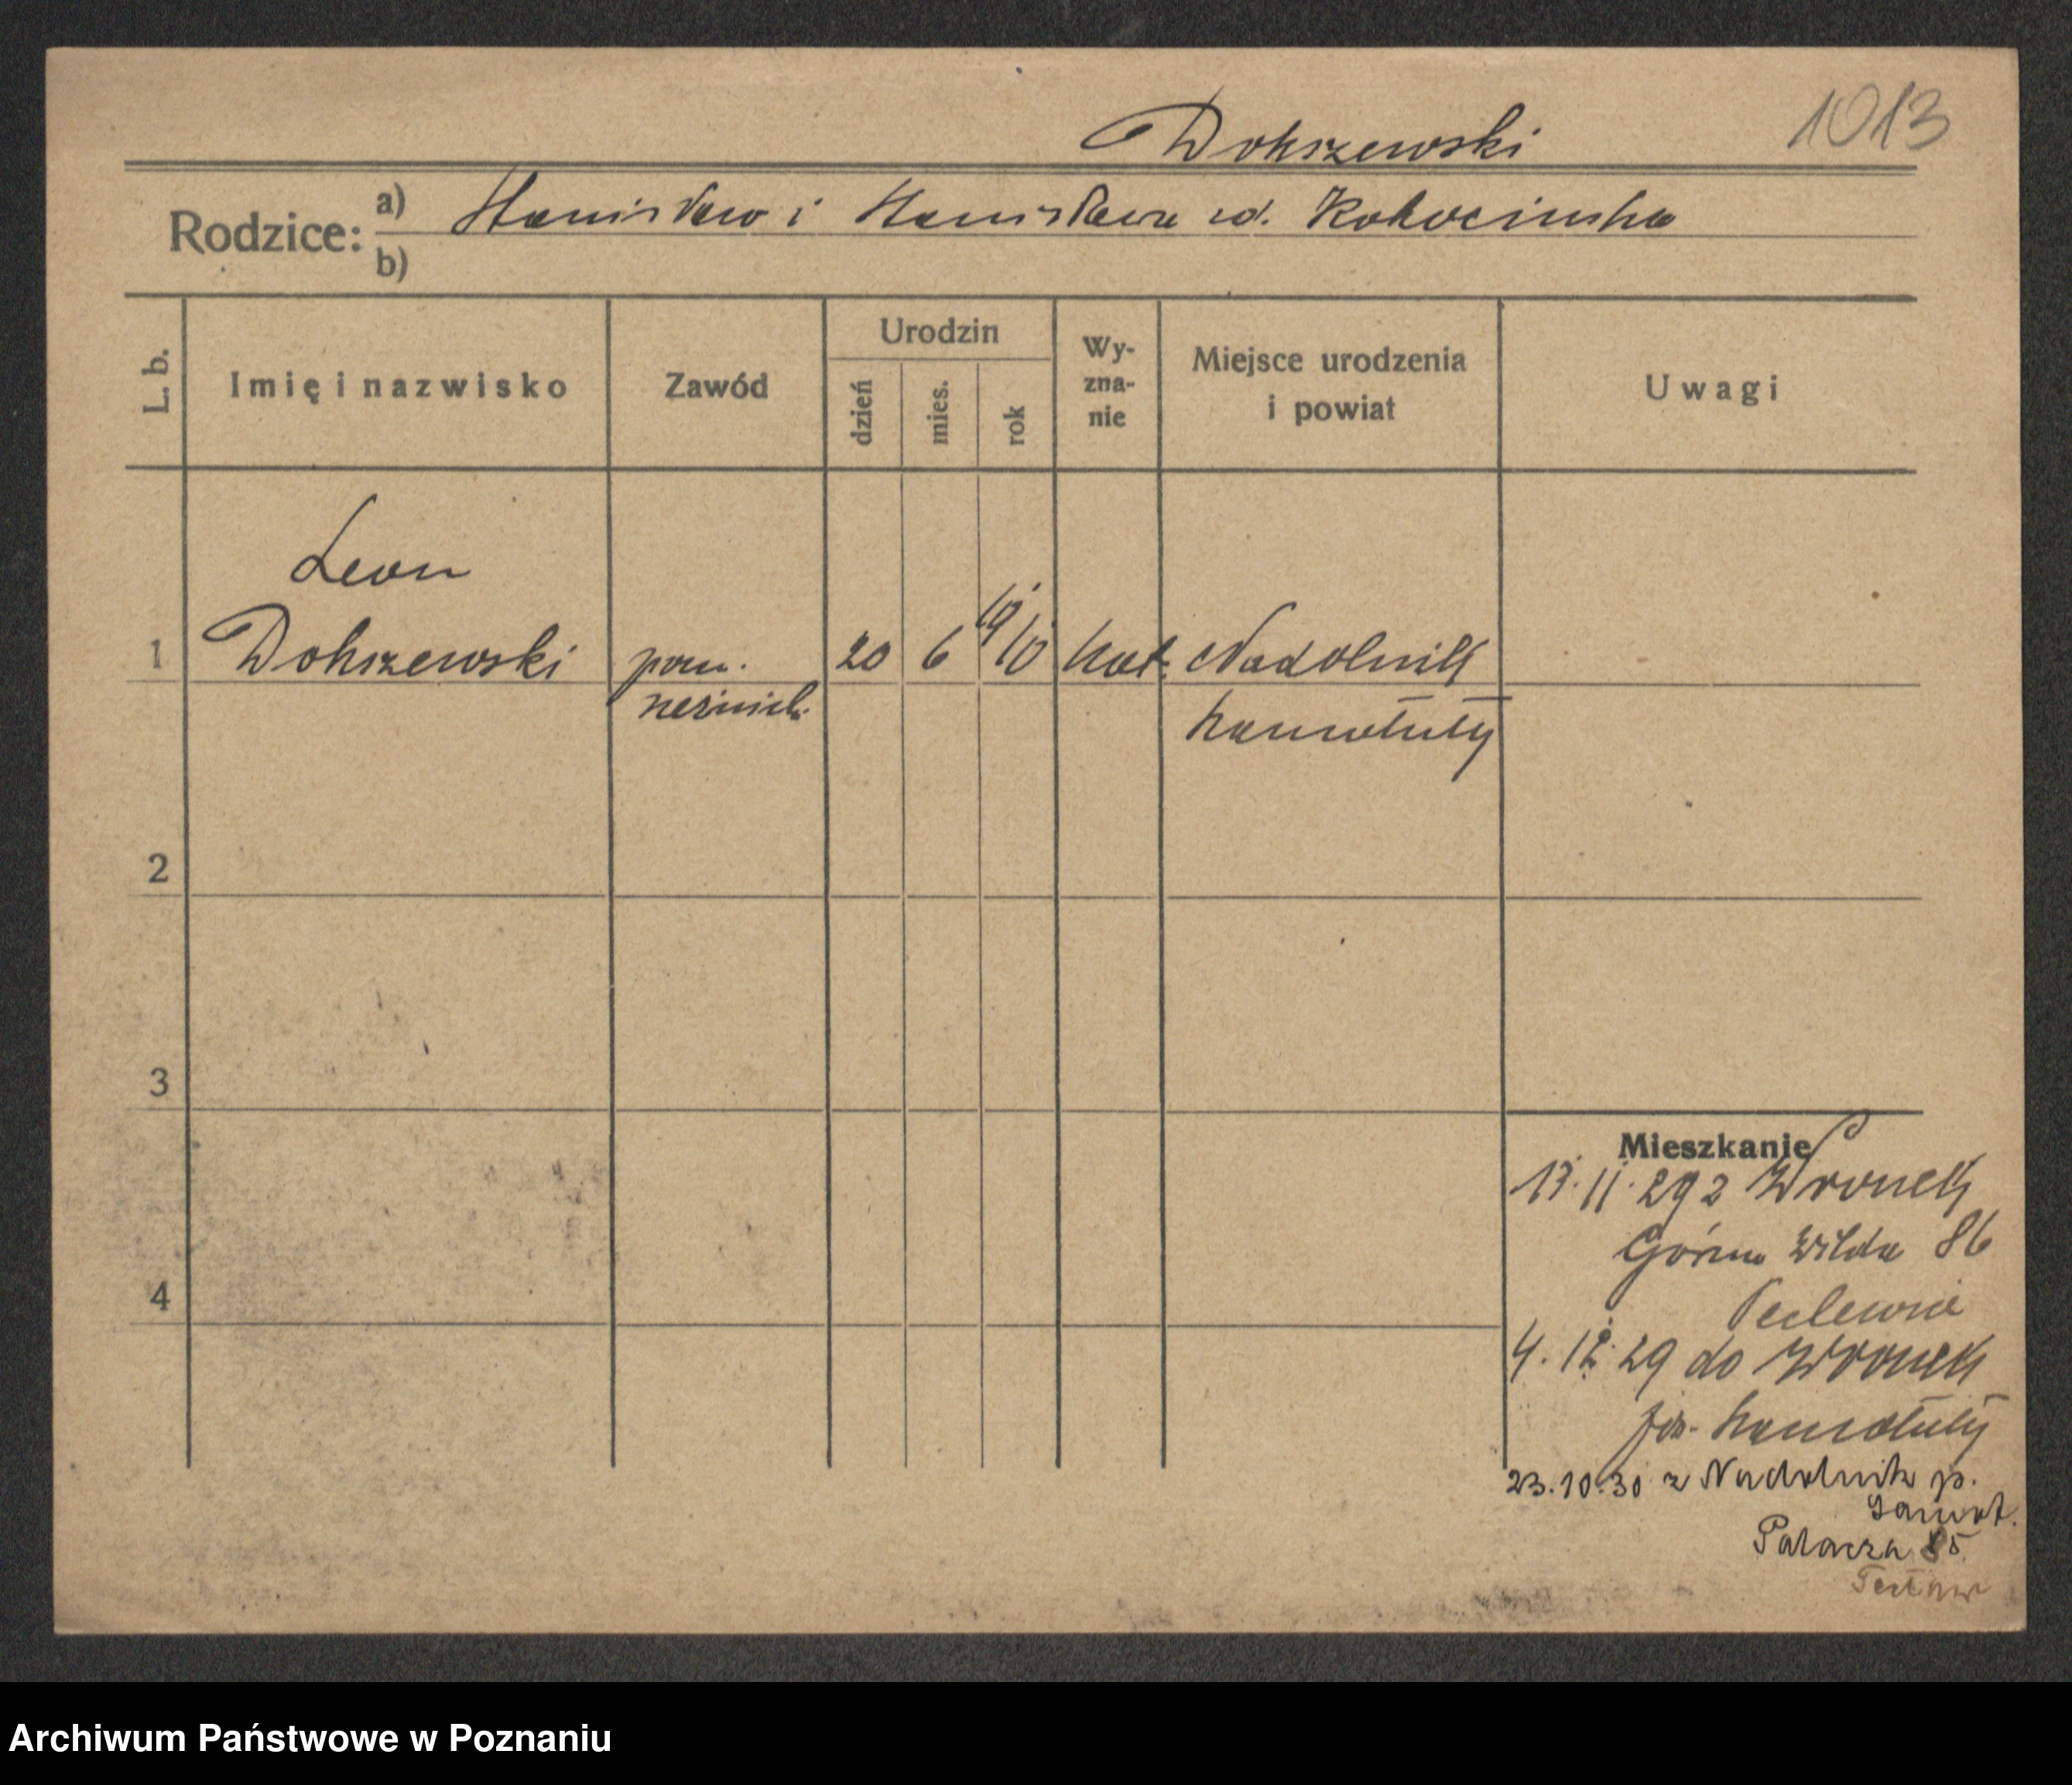 1013
Dokszewski
Rodzice: a) Stanisław i Stanisława ud. Kokocinska
b)
L. b.
Imię i nazwisko
Zawód
Urodzin
dzień
mies.
rok
Wy-
zna-
nie
Miejsce urodzenia
i powiat
Uwagi
Leon
1 Dokszewski pom. 20 6 19/10 kat. Nadolnik
rzeźnick. Szamotuły
2
3
4
Mieszkanie
13.11.29 z Wronek
Górna Wilda 86
4.12.29 do Wronek
Szamotuły
23.10.30 z Nadolnik p.
Szamot.
Palacza 85
Archiwum Państwowe w Poznaniu